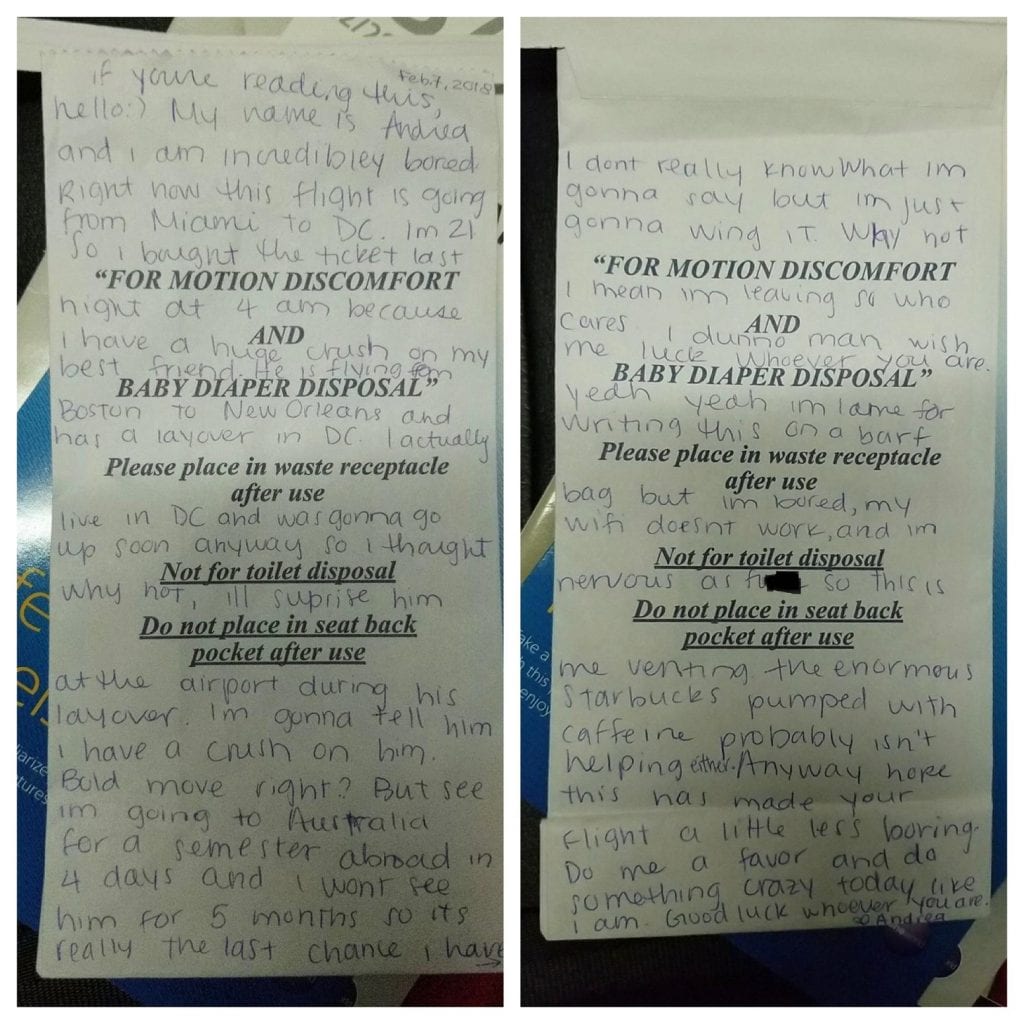 Feb. 7, 2018
if youre reading this,
hello:) My name is Andrea
and i am incredibley bored
Right now this flight is going
from Miami to DC. Im 21
So i bought the ticket last
“FOR MOTION DISCOMFORT
night at 4 am because
AND
i have a huge crush on my
best friend. He is flying from
BABY DIAPER DISPOSAL”
Boston to New Orleans and
has a layover in DC. I actually
Please place in waste receptacle
after use
live in DC and was gonna go
up soon anyway so i thought
Not for toilet disposal
why not, ill suprise him
Do not place in seat back
pocket after use
at the airport during his
layover. Im gonna tell him
i have a crush on him.
Bold move right? But see
im going to Australia
for a semester abroad in
4 days and i wont see
him for 5 months so its
really the last chance i have
→
I dont really know What im
gonna say but im just
gonna wing it. Why not
“FOR MOTION DISCOMFORT
I mean im leaving so who
AND
cares. I dunno man wish
me luck whoever you are.
BABY DIAPER DISPOSAL”
yeah yeah im lame for
writing this on a barf
Please place in waste receptacle
after use
bag but im bored, my
wifi doesnt work, and im
Not for toilet disposal
nervous as f so this is
Do not place in seat back
pocket after use
me venting. the enormous
Starbucks pumped with
caffeine probably isn't
helping either. Anyway hope
this has made your
flight a little less boring.
Do me a favor and do
something crazy today like
i am. Good luck whoever you are.
Andrea